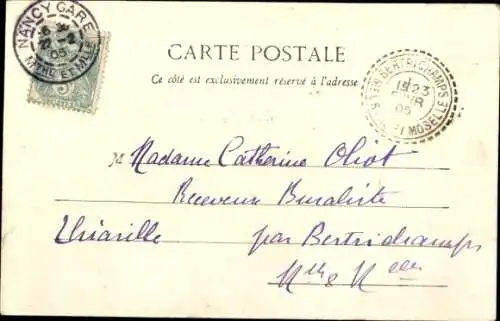 NANCY GARE
22 -2
05
MTHE ET MLLE
CARTE POSTALE
Ce côté est exclusivement réservé à l'adresse
BERTRICHAMPS
23
05
MOSELLE
M Madame Catherine Oliot
Receveur Buraliste
Thiaville par Bertrichamps
Mthe & Melle